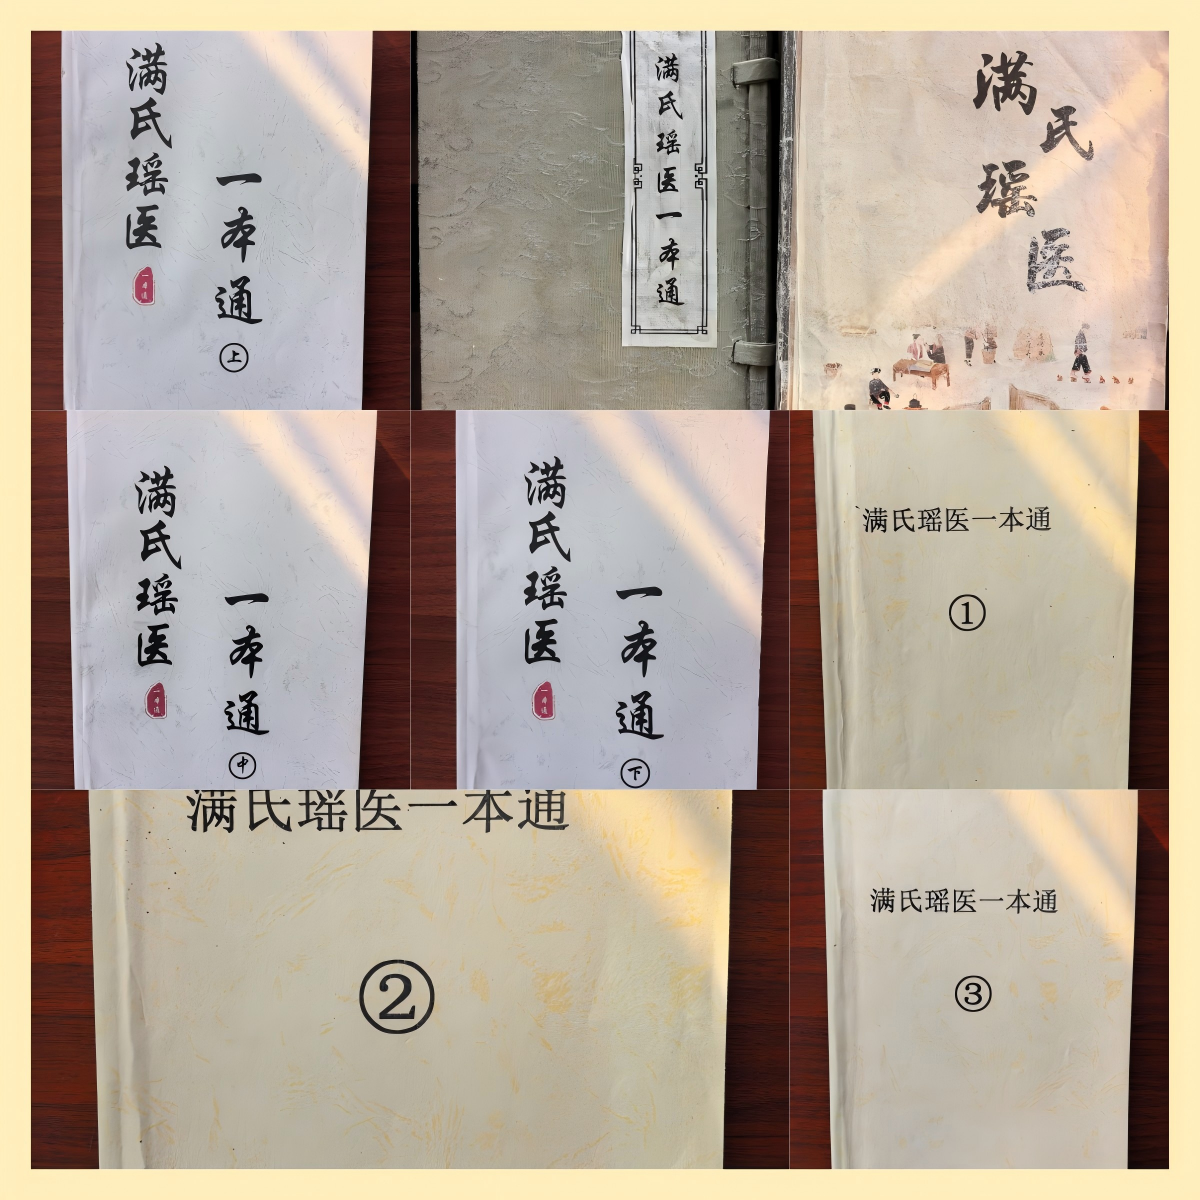 满氏瑶医
一本通
上
一本通
满氏瑶医一本通
满氏
瑶医
满氏瑶医
一本通
中
一本通
满氏瑶医
一本通
下
一本通
满氏瑶医一本通
①
满氏瑶医一本通
②
满氏瑶医一本通
③